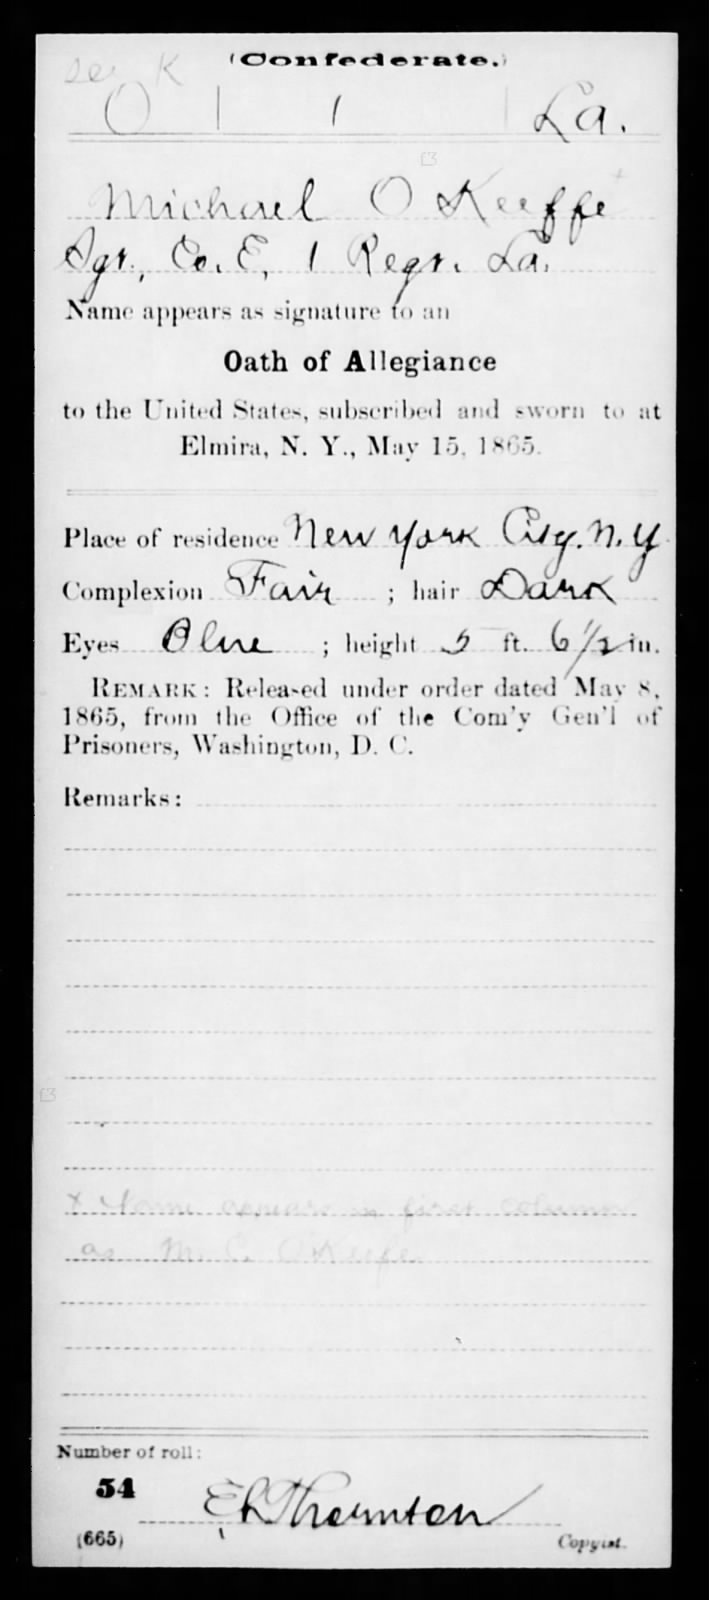 see K
(Confederate.)
O | 1 | La.
Michael O Keeffe +
Sgt., Co. E, 1 Regt. La.
Name appears as signature to an
Oath of Allegiance
to the United States, subscribed and sworn to at
Elmira, N. Y., May 15, 1865.
Place of residence New York City, N. Y
Complexion Fair ; hair Dark
Eyes Blue ; height 5 ft. 6 1/2 in.
REMARK: Released under order dated May 8,
1865, from the Office of the Com'y Gen'l of
Prisoners, Washington, D. C.
Remarks:
+ Name appears in first column
as M. C. O'Keefe
Number of roll:
54
E R Thornton
(665) Copyist.